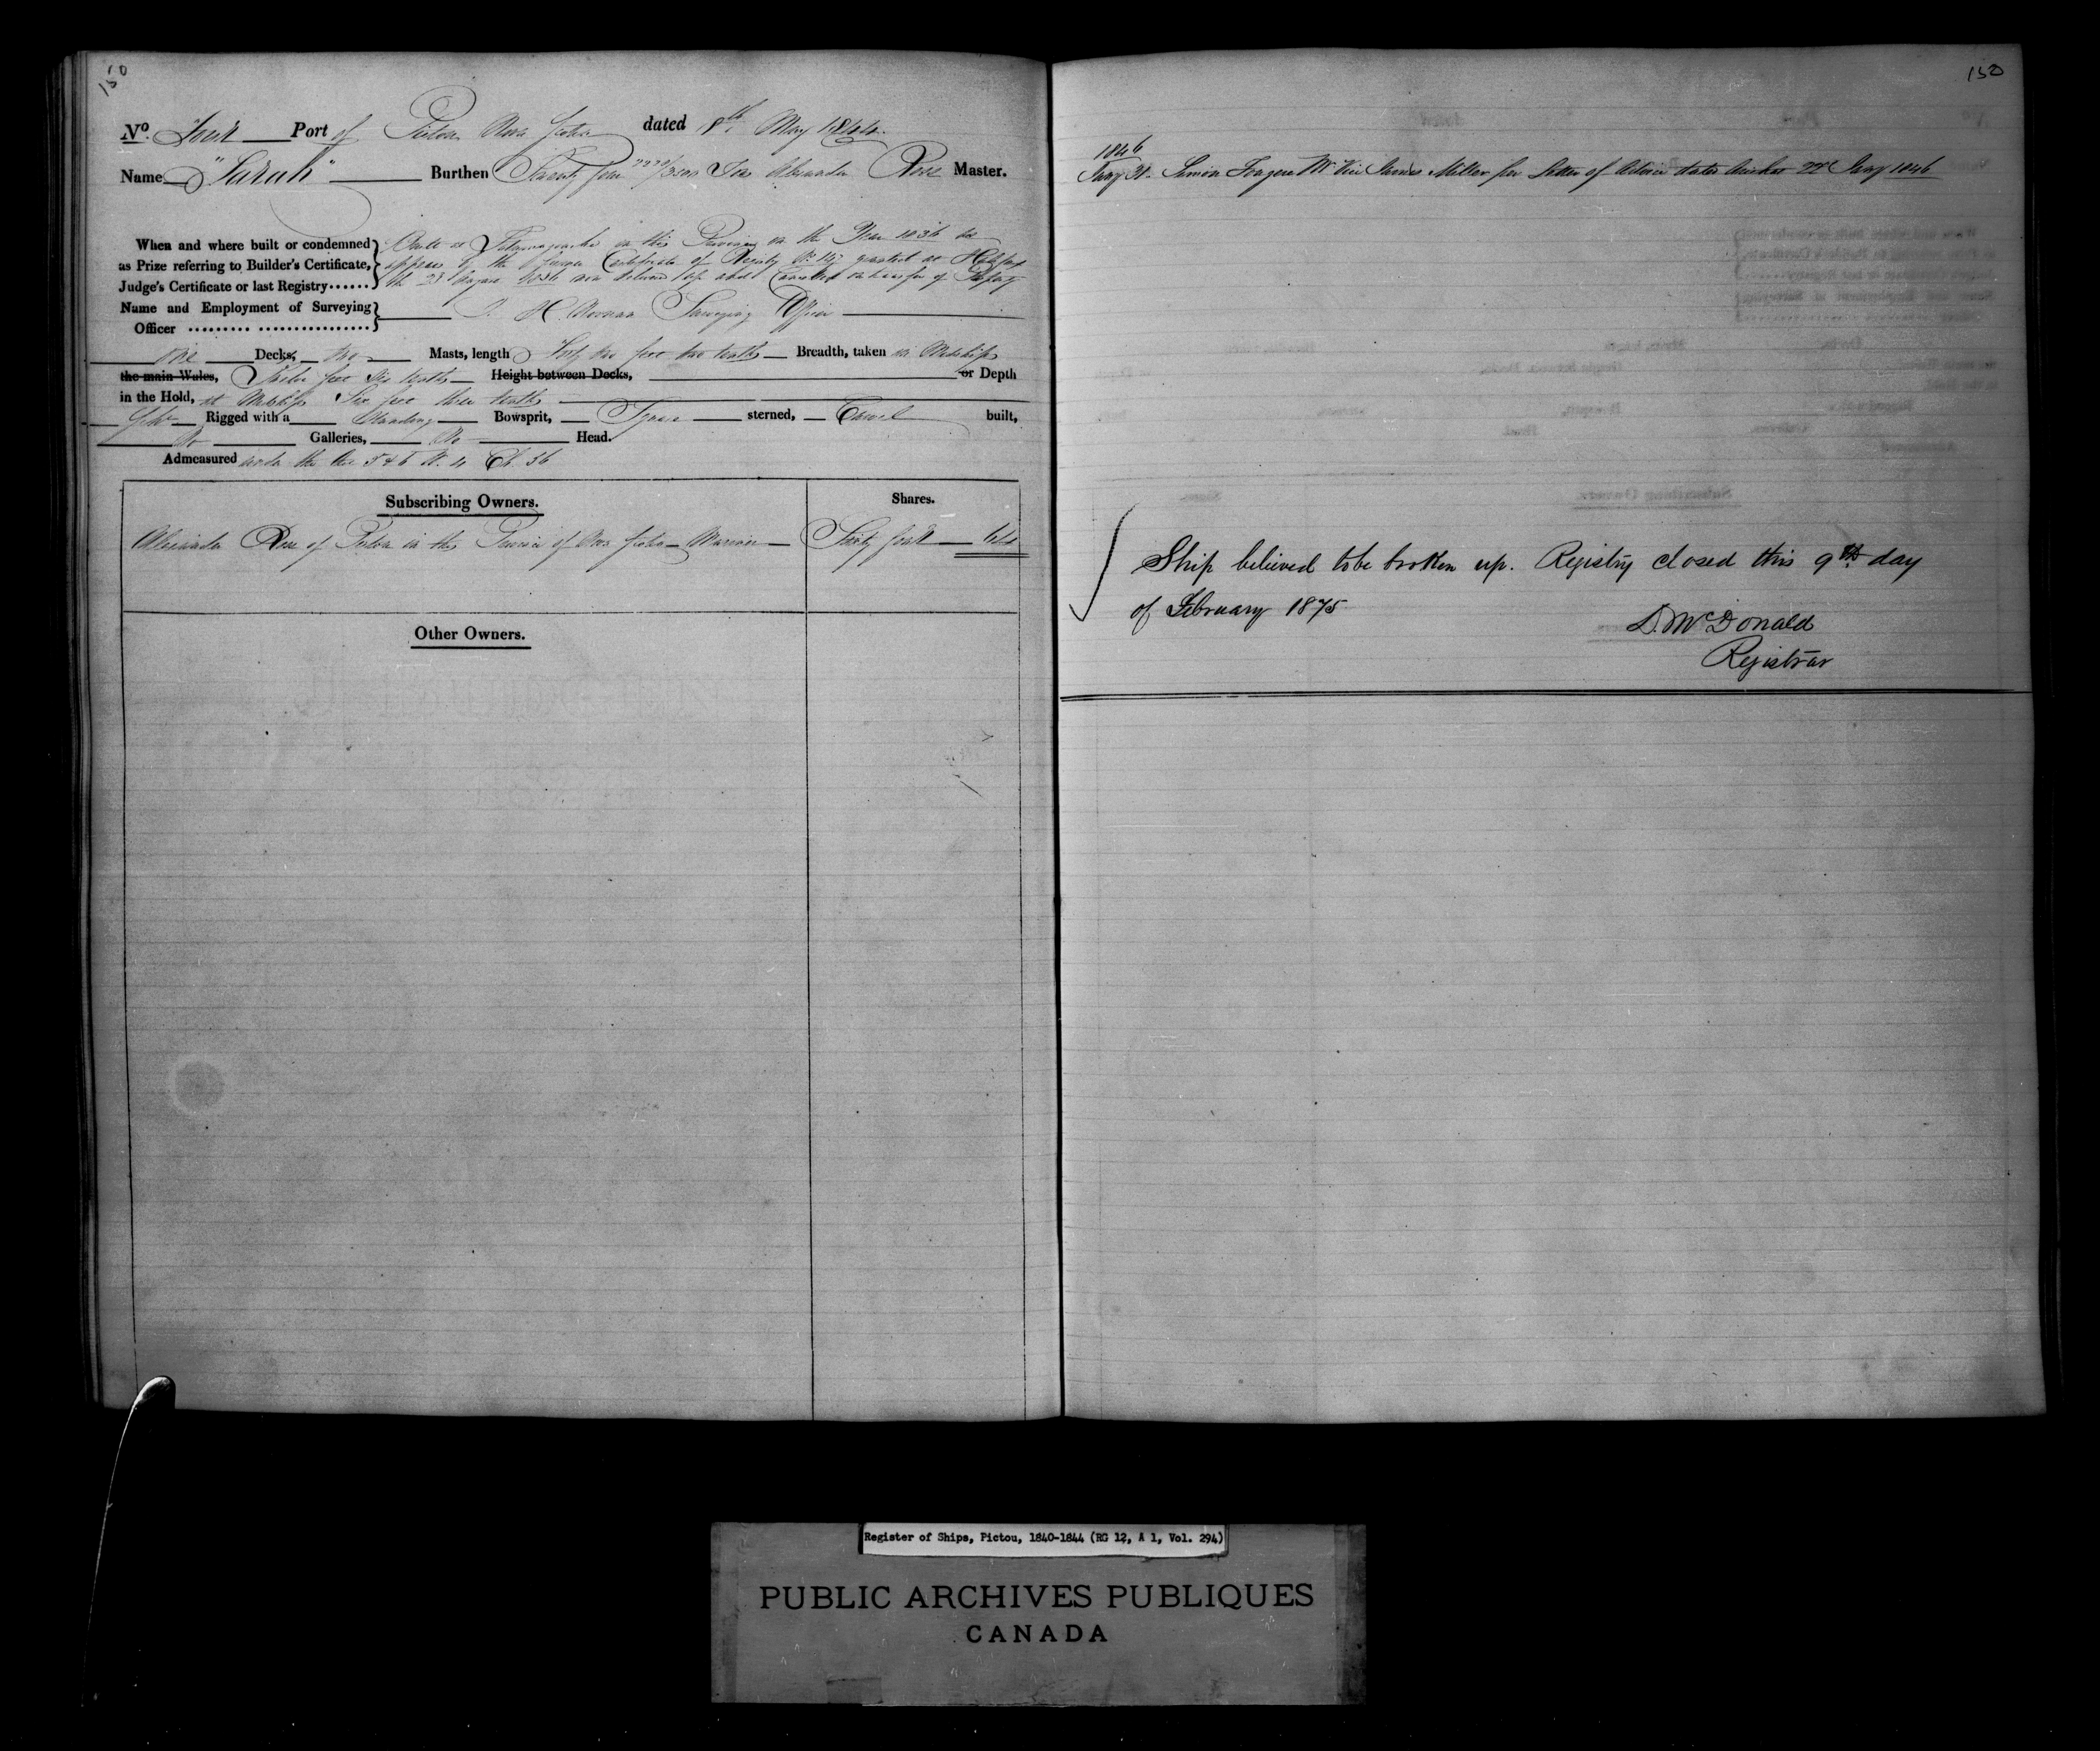 150
No. Four Port of Pictou Nova Scotia dated 18th May 1844
Name "Sarah" Burthen Twenty four 2220/3500 Tons Alexander Ross Master.
When and where built or condemned
as Prize referring to Builder's Certificate,
Judge's Certificate or last Registry......
Built at in this Province in the Year 1836 as
appears by the former Certificate of Registry No. granted at Halifax
the 23 1836 now delivered up and Cancelled on transfer of Property
Name and Employment of Surveying
Officer ......... ................
H. Noonan Surveying Officer
One Decks, two Masts, length feet two tenths Breadth, taken in Midships
the main Wales, feet six tenths Height between Decks, or Depth
in the Hold, at Midships Six feet three tenths
Rigged with a Standing Bowsprit, Square sterned, Carvel built,
No Galleries, No Head.
Admeasured under the Act 5 & 6 W. 4 Ch. 56
Subscribing Owners.
Shares.
Alexander Ross of Pictou in the Province of Nova Scotia Mariner Sixty four 64
Other Owners.
150
1846
Jany 31. Simon James Miller per Letter of Advice dated 22d Jany 1846
Ship believed to be broken up. Registry closed this 9th day
of February 1875
D. McDonald
Registrar
Register of Ships, Pictou, 1840-1844 (RG 12, A 1, Vol. 294)
PUBLIC ARCHIVES PUBLIQUES
CANADA